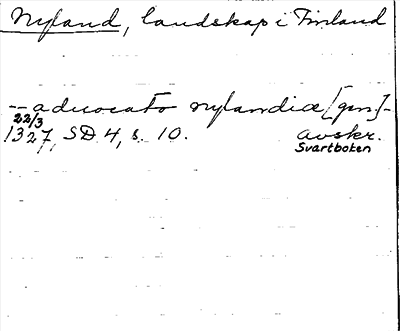 Nyland, landskap i Finland
-- aduocato nylandiæ [gen] -
22/3
1327, SD 4, s. 10. avskr.
Svartboken